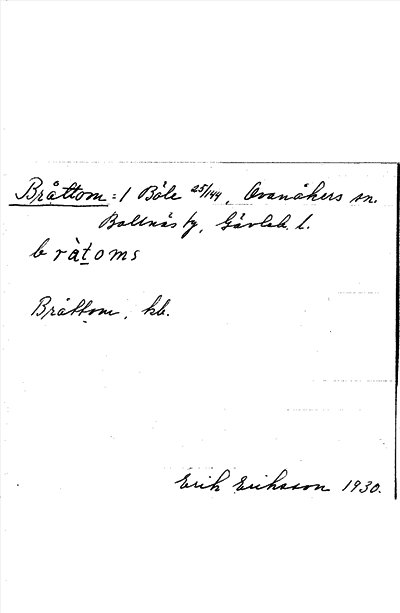 Bråttom = 1 Böle 25/144, Ovanåkers sn.
Bollnäs tg, Gävleb. l.
bråtoms
Bråttom, kb.
Erik Eriksson 1930.